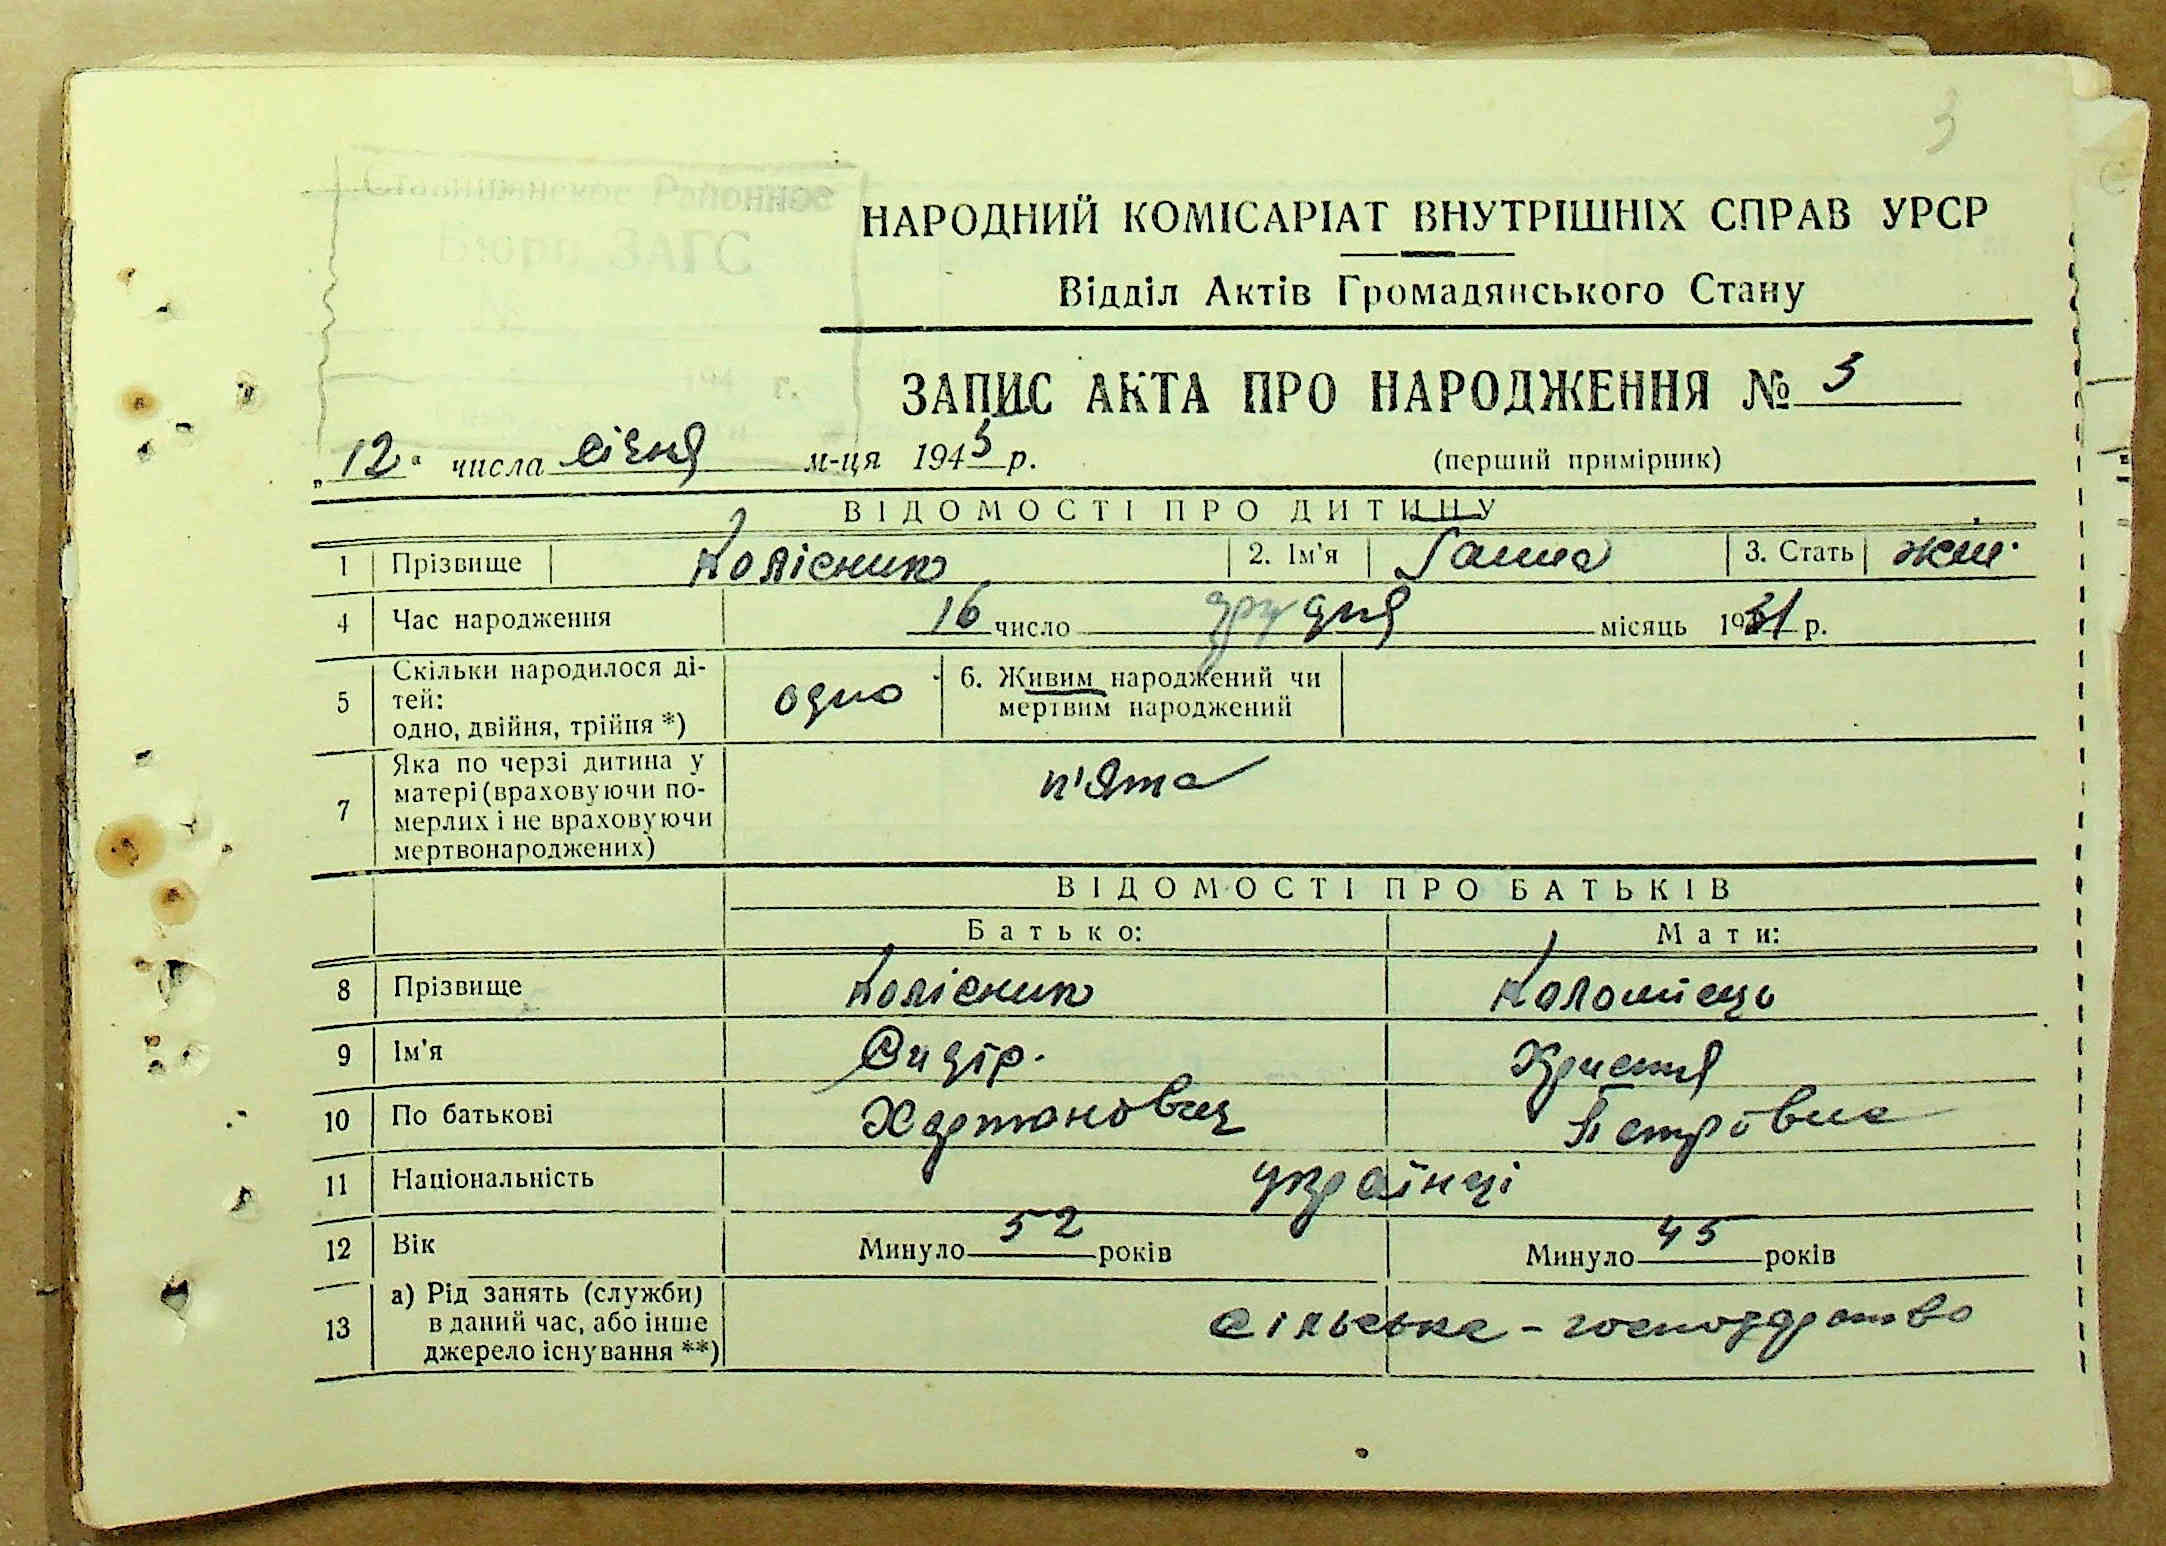 3
Ставищанское Районное
Бюро ЗАГС
№
194 г.
НАРОДНИЙ КОМІСАРІАТ ВНУТРІШНІХ СПРАВ УРСР
Відділ Актів Громадянського Стану
ЗАПИС АКТА ПРО НАРОДЖЕННЯ № 3
„12“ числа січня м-ця 1945 р. (перший примірник)
ВІДОМОСТІ ПРО ДИТИНУ
1 Прізвище Колісник 2. Ім'я Ганна 3. Стать жін.
4 Час народження 16 число грудня місяць 1931 р.
5 Скільки народилося ді-
тей:
одно, двійня, трійня *) одно 6. Живим народжений чи
мертвим народжений
7 Яка по черзі дитина у
матері (враховуючи по-
мерлих і не враховуючи
мертвонароджених) п'ята
ВІДОМОСТІ ПРО БАТЬКІВ
Батько: Мати:
8 Прізвище Колісник Коломієць
9 Ім'я Сидір. Христя
10 По батькові Харитонович Петровна
11 Національність українці
12 Вік Минуло 52 років Минуло 45 років
13 а) Рід занять (служби)
в даний час, або інше
джерело існування **) сільське-господарство